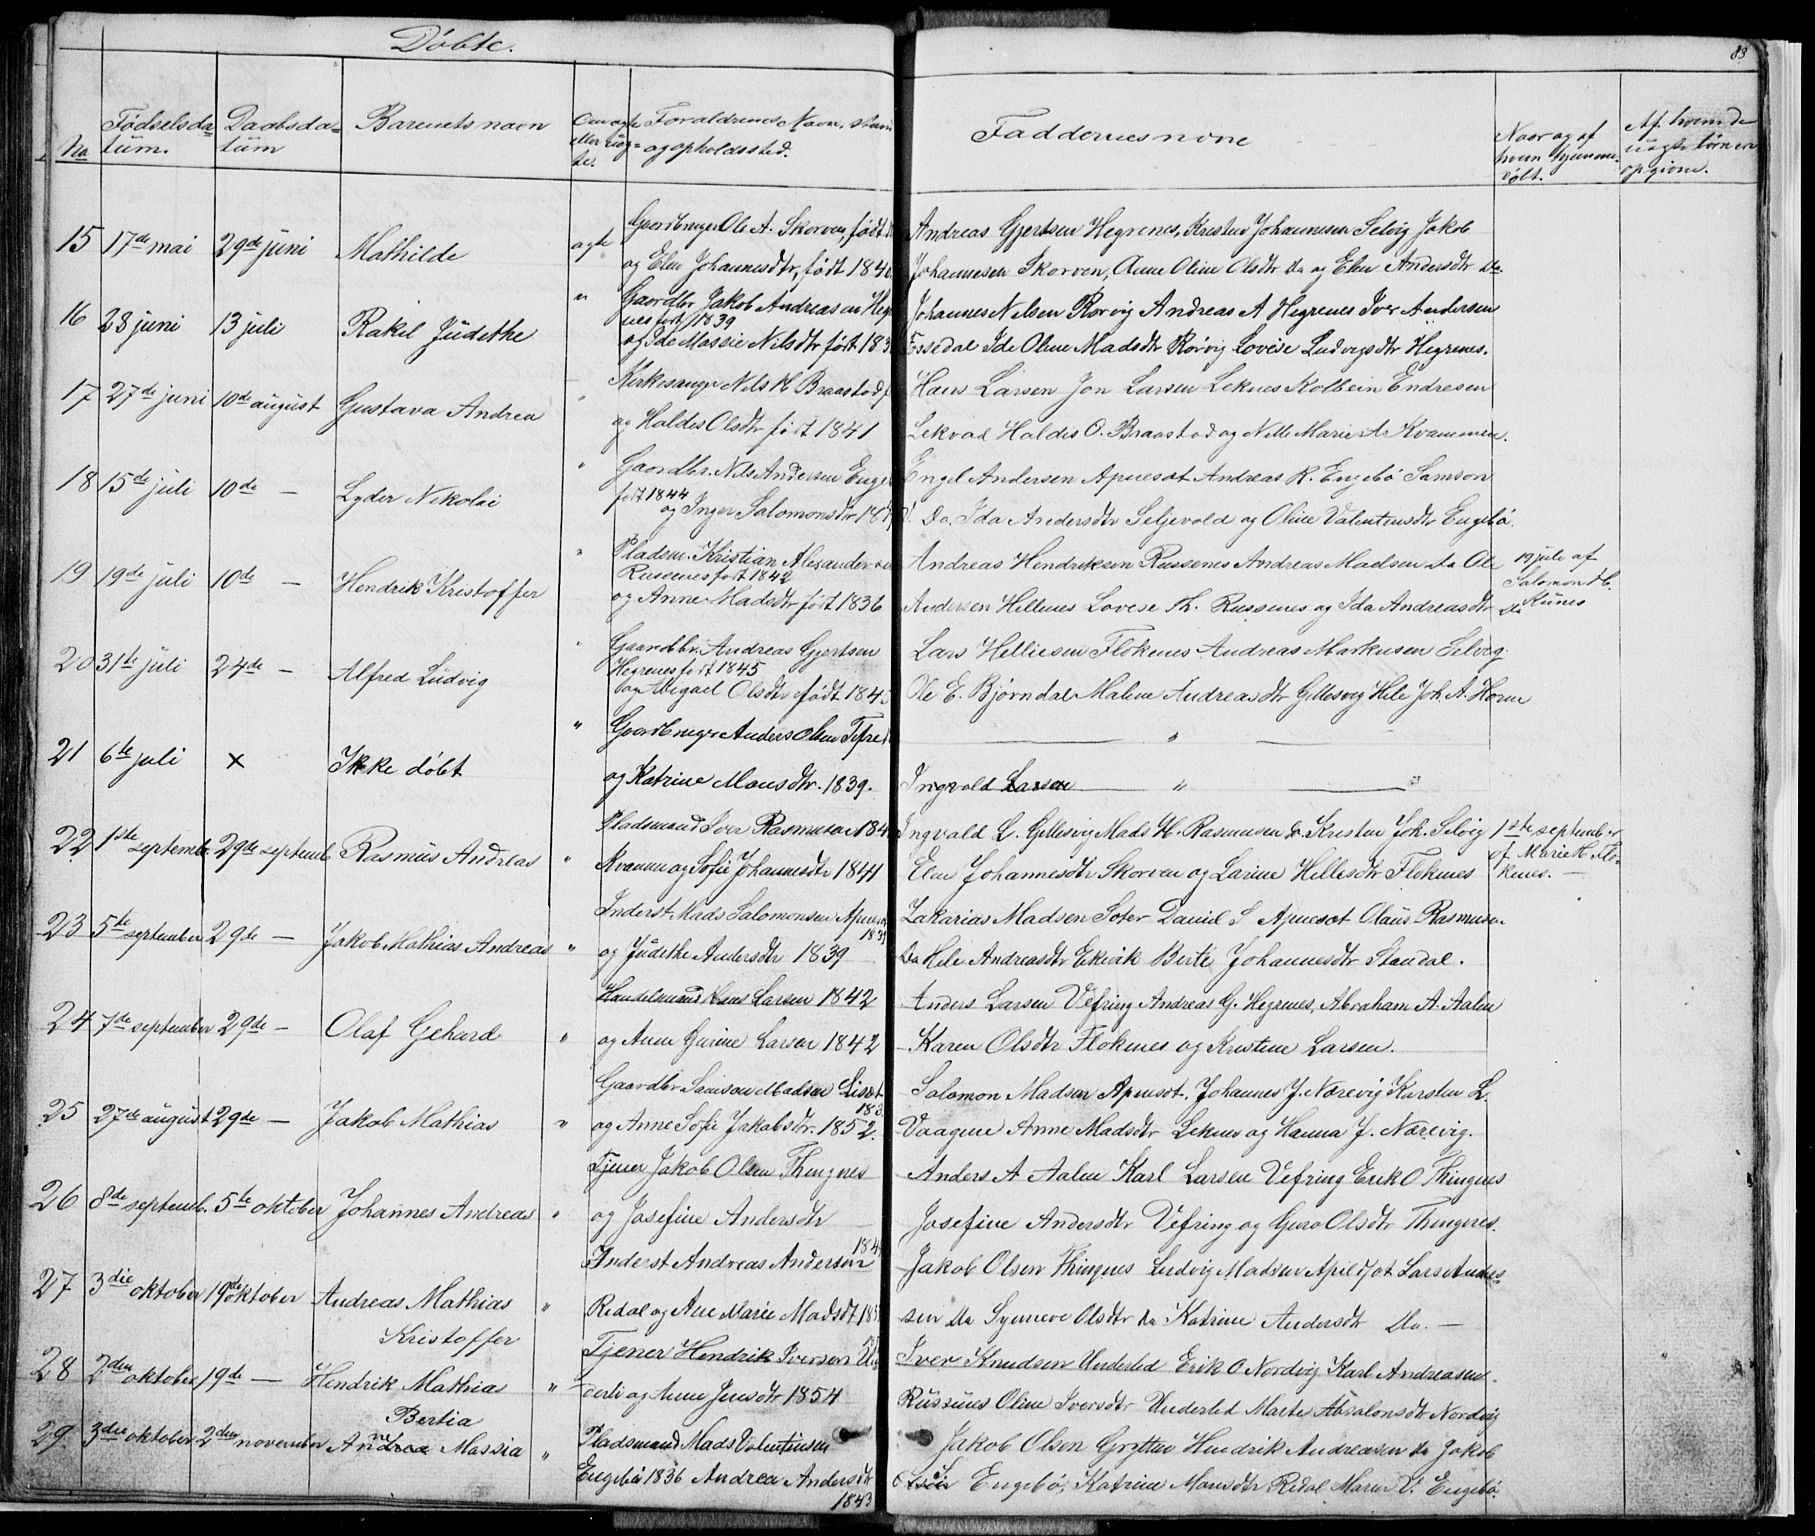 Døbte.
83
No
Fødselsda-
tum.
Daabsda-
tum
Barnets navn
Om ægte
eller uæg-
te.
Foraldrenes Navn, stand
og opholdssted.
Faddernes navne
Naar og af
hvem hjemme-
døbt.
Af hvem de
uægte børn er
opgivne.
15 17de mai 29de juni Mathilde ægte Gaardbruger Ole A. Skorven, født
og Elen Johannesdtr, født 184
Andreas Gjertsen Hegrenes, Kresten Johannesen Selvig Jakob
Johannesen Skorven, Anne Oline Olsdtr Do og Elen Andersdtr Do.
16 23 juni 13 juli Rakel Judithe " Gaardbr Jakob Andreasen Heg
nes født 1839
og Ide Massie Nilsdtr født 183
Johannes Nilsen Rørvig Andreas A Hegrenes Iver Andersen
Fossedal Ide Oline Madsdtr Rørvig Lovise Ludvigsdtr Hegrenes.
17 27de juni 10de august Gustava Andrea " Kirkesanger Nils K Braastad
og Haldis Olsdtr født 1841
Hans Larsen Jon Larsen Leknes Kolbein Endresen
Lekvad Haldis O. Braastad og Nille Marie A Kvammen.
18 15de juli 10de — Lyder Nikolai " Gaardbr. Nils Andersen Enge
født 1844
og Inger Salomonsdtr 18
Engel Andersen Apnesæt Andreas R. Engebø Samson
S. Do, Ida Andersdtr Seljevold og Oline Valentinsdtr Engebø.
19 19de juli 10de — Hendrik Kristoffer " Pladsm. Kristian Alexandersen
Russenes født 1842
og Anne Madsdtr født 1836
Andreas Hendriksen Russenes Andreas Madsen do Ole
Andersen Hellenes Lovise Th. Russenes og Ida Andreasdtr Do
19 juli af
Salomon
Kunes
20 31te juli 24de — Alfred Ludvig " Gaardbr. Andreas Gjertsen
Hegrenes født 1845
og Abigael Olsdtr født 184
Lars Helliesen Flokenes Andreas Markusen Selvig
Ole E. Bjørndal Malene Andreasdtr Gillesvig Hele Joh. A. Horne
21 6te juli × Ikke døbt " Gaardbruger Anders Olsen Tefre
og Katrine Monsdtr. 1839.
— " —
Ingvald Larsen — " —
22 1ste septemb. 29de septemb. Rasmus Andreas " Pladsmand Iver Rasmusen 184
Kvamm og Sofie Johannesdtr 1841
Ingvald L. Gillesvig Mads H. Rasmusen do Kresten Joh. Selvig
Elen Johannesdtr Skorven og Larine Hellesdtr Flokenes
1ste september
af Marie H. Flo-
kenes. —
23 5te september 29de — Jakob Mathias Andreas " Inderst Mads Salomonsen Apnesæt
183
og Judithe Andersdtr 1839
Zakarias Madsen Soter Daniel S Apnesæt Olaus Rasmusen
Do Hele Andreasdtr Ekevik Berte Johannesdtr Standal.
24 7de september 29de — Olaf Gehard " Handelsmand Hans Larsen 1842
og Anne Gurine Larsen 1842
Anders Larsen Vefring Andreas G. Hegrenes, Abraham A. Aalen
Karen Olsdtr Flokenes og Kristine Larsen.
25 27de august 29de — Jakob Mathias " Gaardbr Samson Madsen Liset
183
og Anne Sofie Jakobsdtr. 1852.
Salomon Madsen Apnesæt, Johannes J. Nærevig Karsten L.
Vaagene Anne Madsdtr Leknes og Hanna J. Nærevig.
26 8de septemb. 5te oktober Johannes Andreas " Tjener Jakob Olsen Thingnes
og Josefine Andersdtr
Anders A Aalen Karl Larsen Vefring Erik O Thingnes
Josefine Andersdtr Vefring og Guro Olsdtr Thingnes.
27 3die oktober 19de oktober Andreas Mathias
Kristoffer " Inderst Andreas Andersen
184
Redal og Ane Marie Madsdt 18
Jakob Olsen Thingnes Ludvig Madsen Apildsæt Lars Ander-
sen Do Synneve Olsdtr do Katrine Andersdtr Do. —
28 2den oktober 19de — Hendrik Mathias " Tjener Hendrik Iversen
og Anne Jensdtr 1854
Iver Knudsen Underlid Erik O Nordvig Karl Andreasen
Russenes Oline Iversdtr Underlid Marte Absalonsdtr Nordvig
29 3die oktober 2den november Bertia
Andrea Massia " Pladsmand Mads Valentinsen
Engebø 1836 Andrea Andersdtr
1843
Jakob Olsen Grytten Hendrik Andreasen do Jakob
Engebø, Katrine Monsdtr Redal Maren V. Engebø.